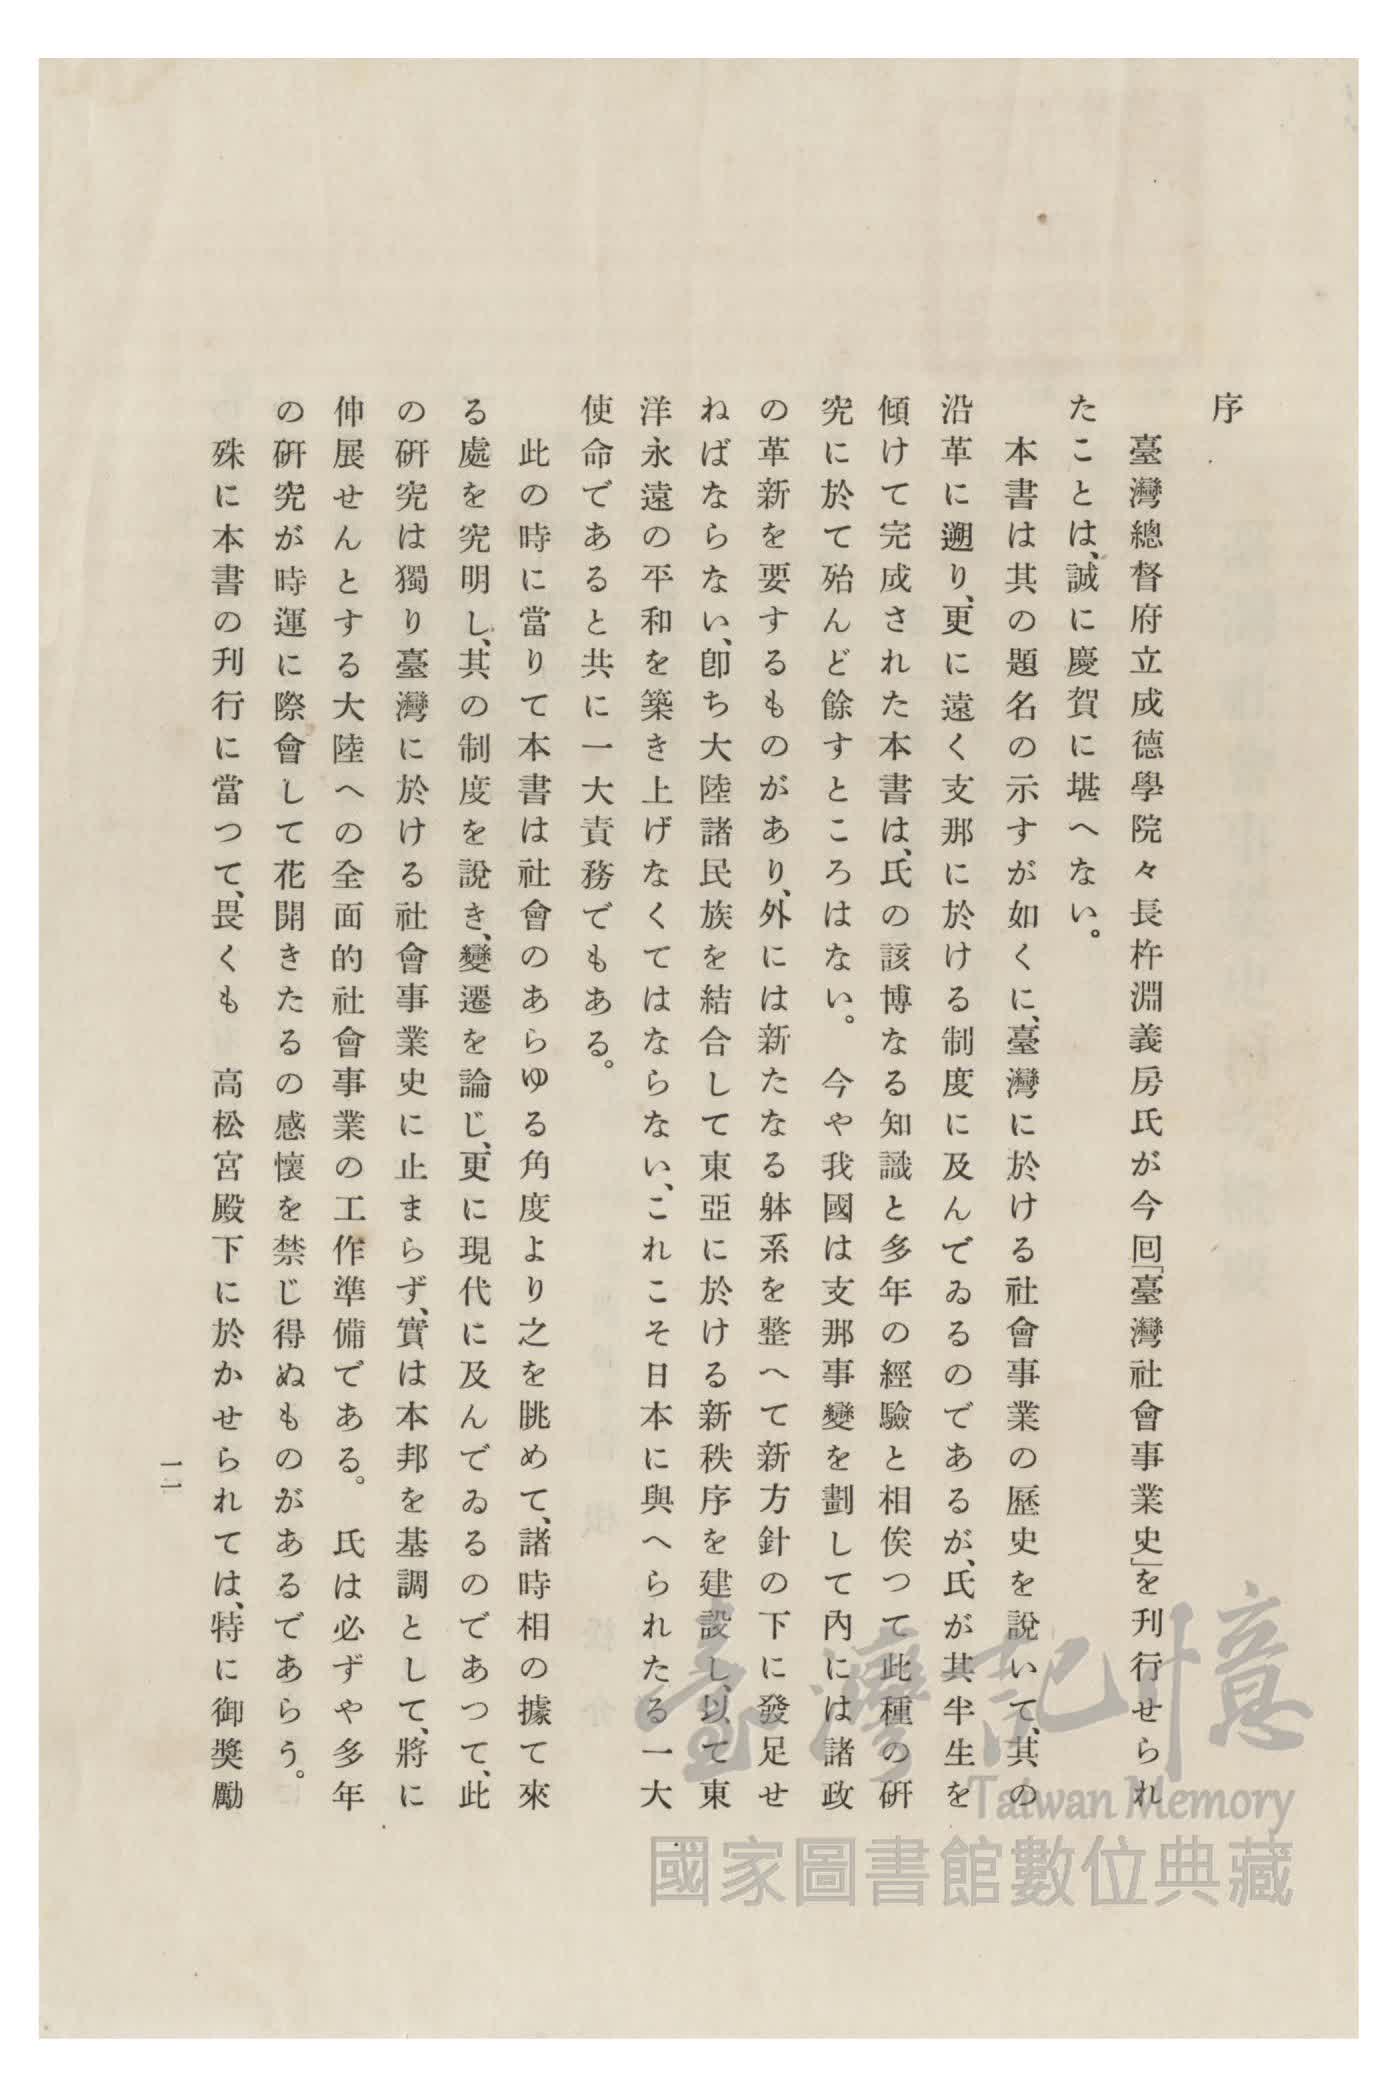 序
臺灣總督府立成德學院々長杵淵義房氏が今回「臺灣社會事業史」を刊行せられ
たことは、誠に慶賀に堪へない。
本書は其の題名の示すが如くに、臺灣に於ける社會事業の歷史を說いて、其の
沿革に遡り、更に遠く支那に於ける制度に及んでゐるのであるが、氏が其半生を
傾けて完成された本書は、氏の該博なる知識と多年の經驗と相俟つて此種の研
究に於て殆んど餘すところはない。 今や我國は支那事變を劃して內には諸政
の革新を要するものがあり、外には新たなる躰系を整へて新方針の下に發足せ
ねばならない、卽ち大陸諸民族を結合して東亞に於ける新秩序を建設し、以て東
洋永遠の平和を築き上げなくてはならない、これこそ日本に與へられたる一大
使命であると共に一大責務でもある。
此の時に當りて本書は社會のあらゆる角度より之を眺めて、諸時相の據て來
る處を究明し、其の制度を說き、變遷を論じ、更に現代に及んでゐるのであつて、此
の硏究は獨り臺灣に於ける社會事業史に止まらず、實は本邦を基調として、將に
伸展せんとする大陸への全面的社會事業の工作準備である。 氏は必ずや多年
の硏究が時運に際會して花開きたるの感懷を禁じ得ぬものがあるであらう。
殊に本書の刊行に當つて、畏くも 高松宮殿下に於かせられては、特に御奬勵
一一
臺灣記憶
Taiwan Memory
國家圖書館數位典藏